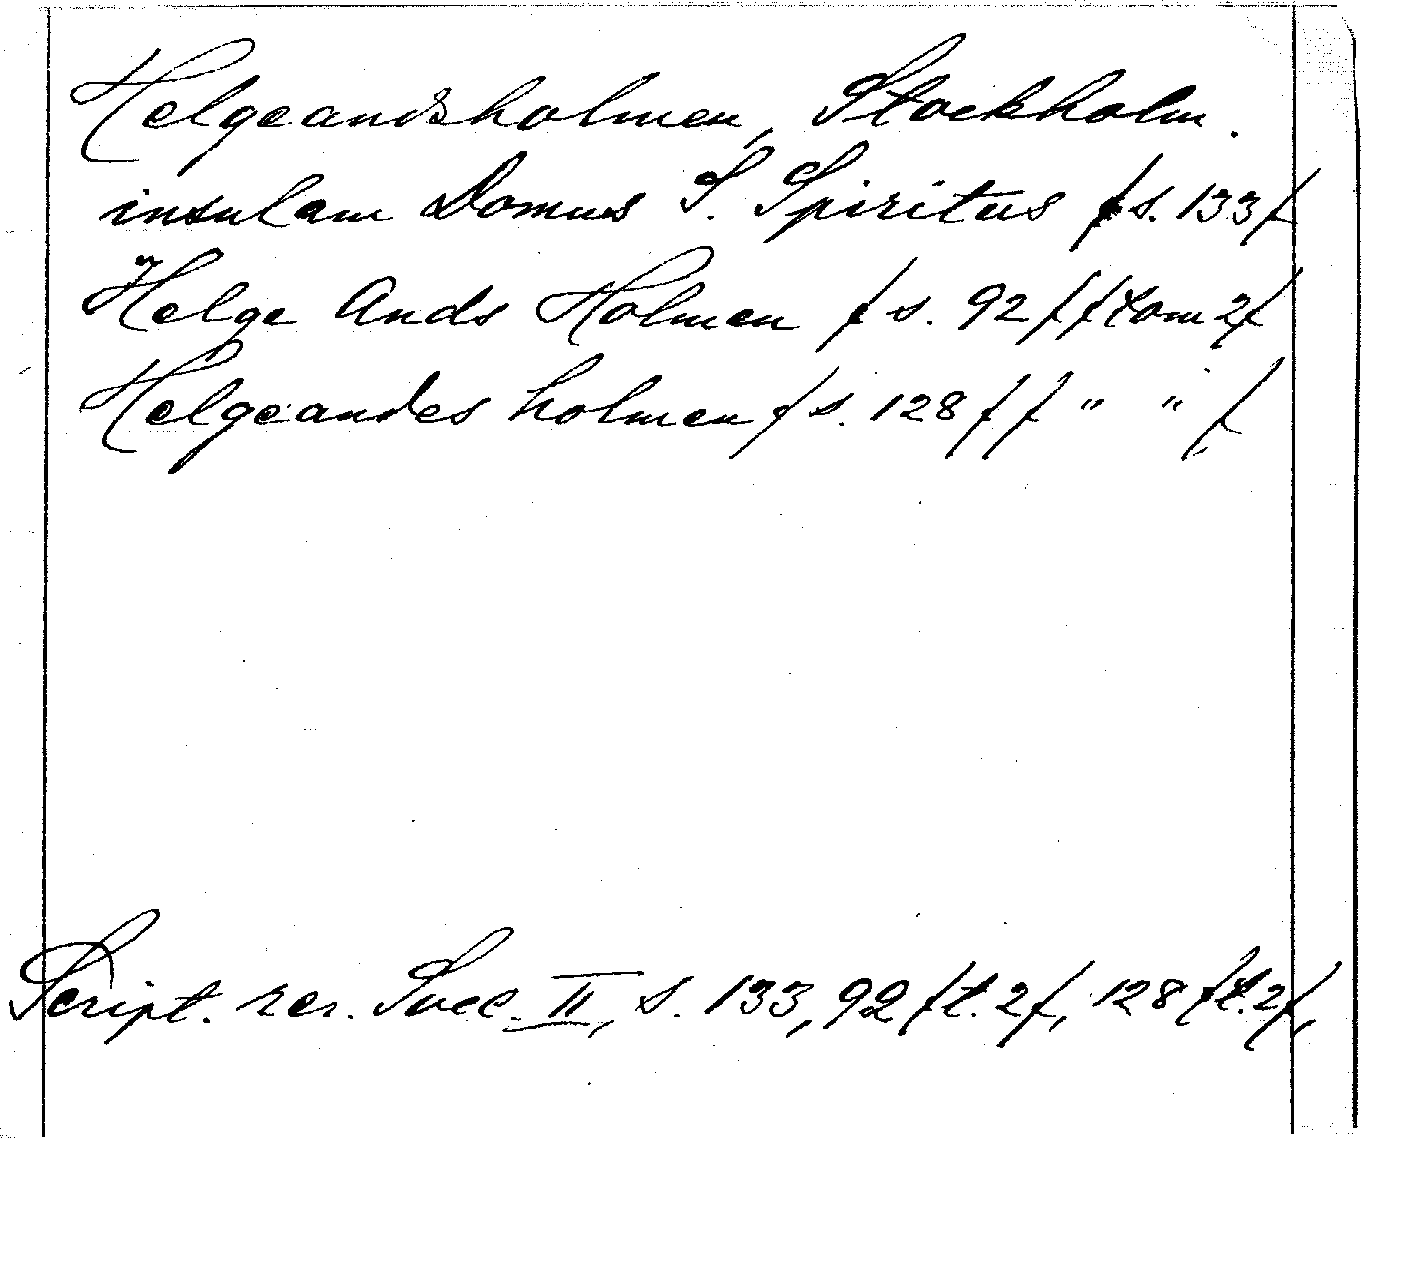 Helgeandsholmen, Stockholm.
insulam Domus S. Spiritus /s. 133/
Helge Ands Holmen /s. 92/ /tom 2/
Helgeandes holmen /s. 128/ / " " /
Script. rer. Svec. II, s. 133, 92 /t. 2/, 128 /t. 2/,